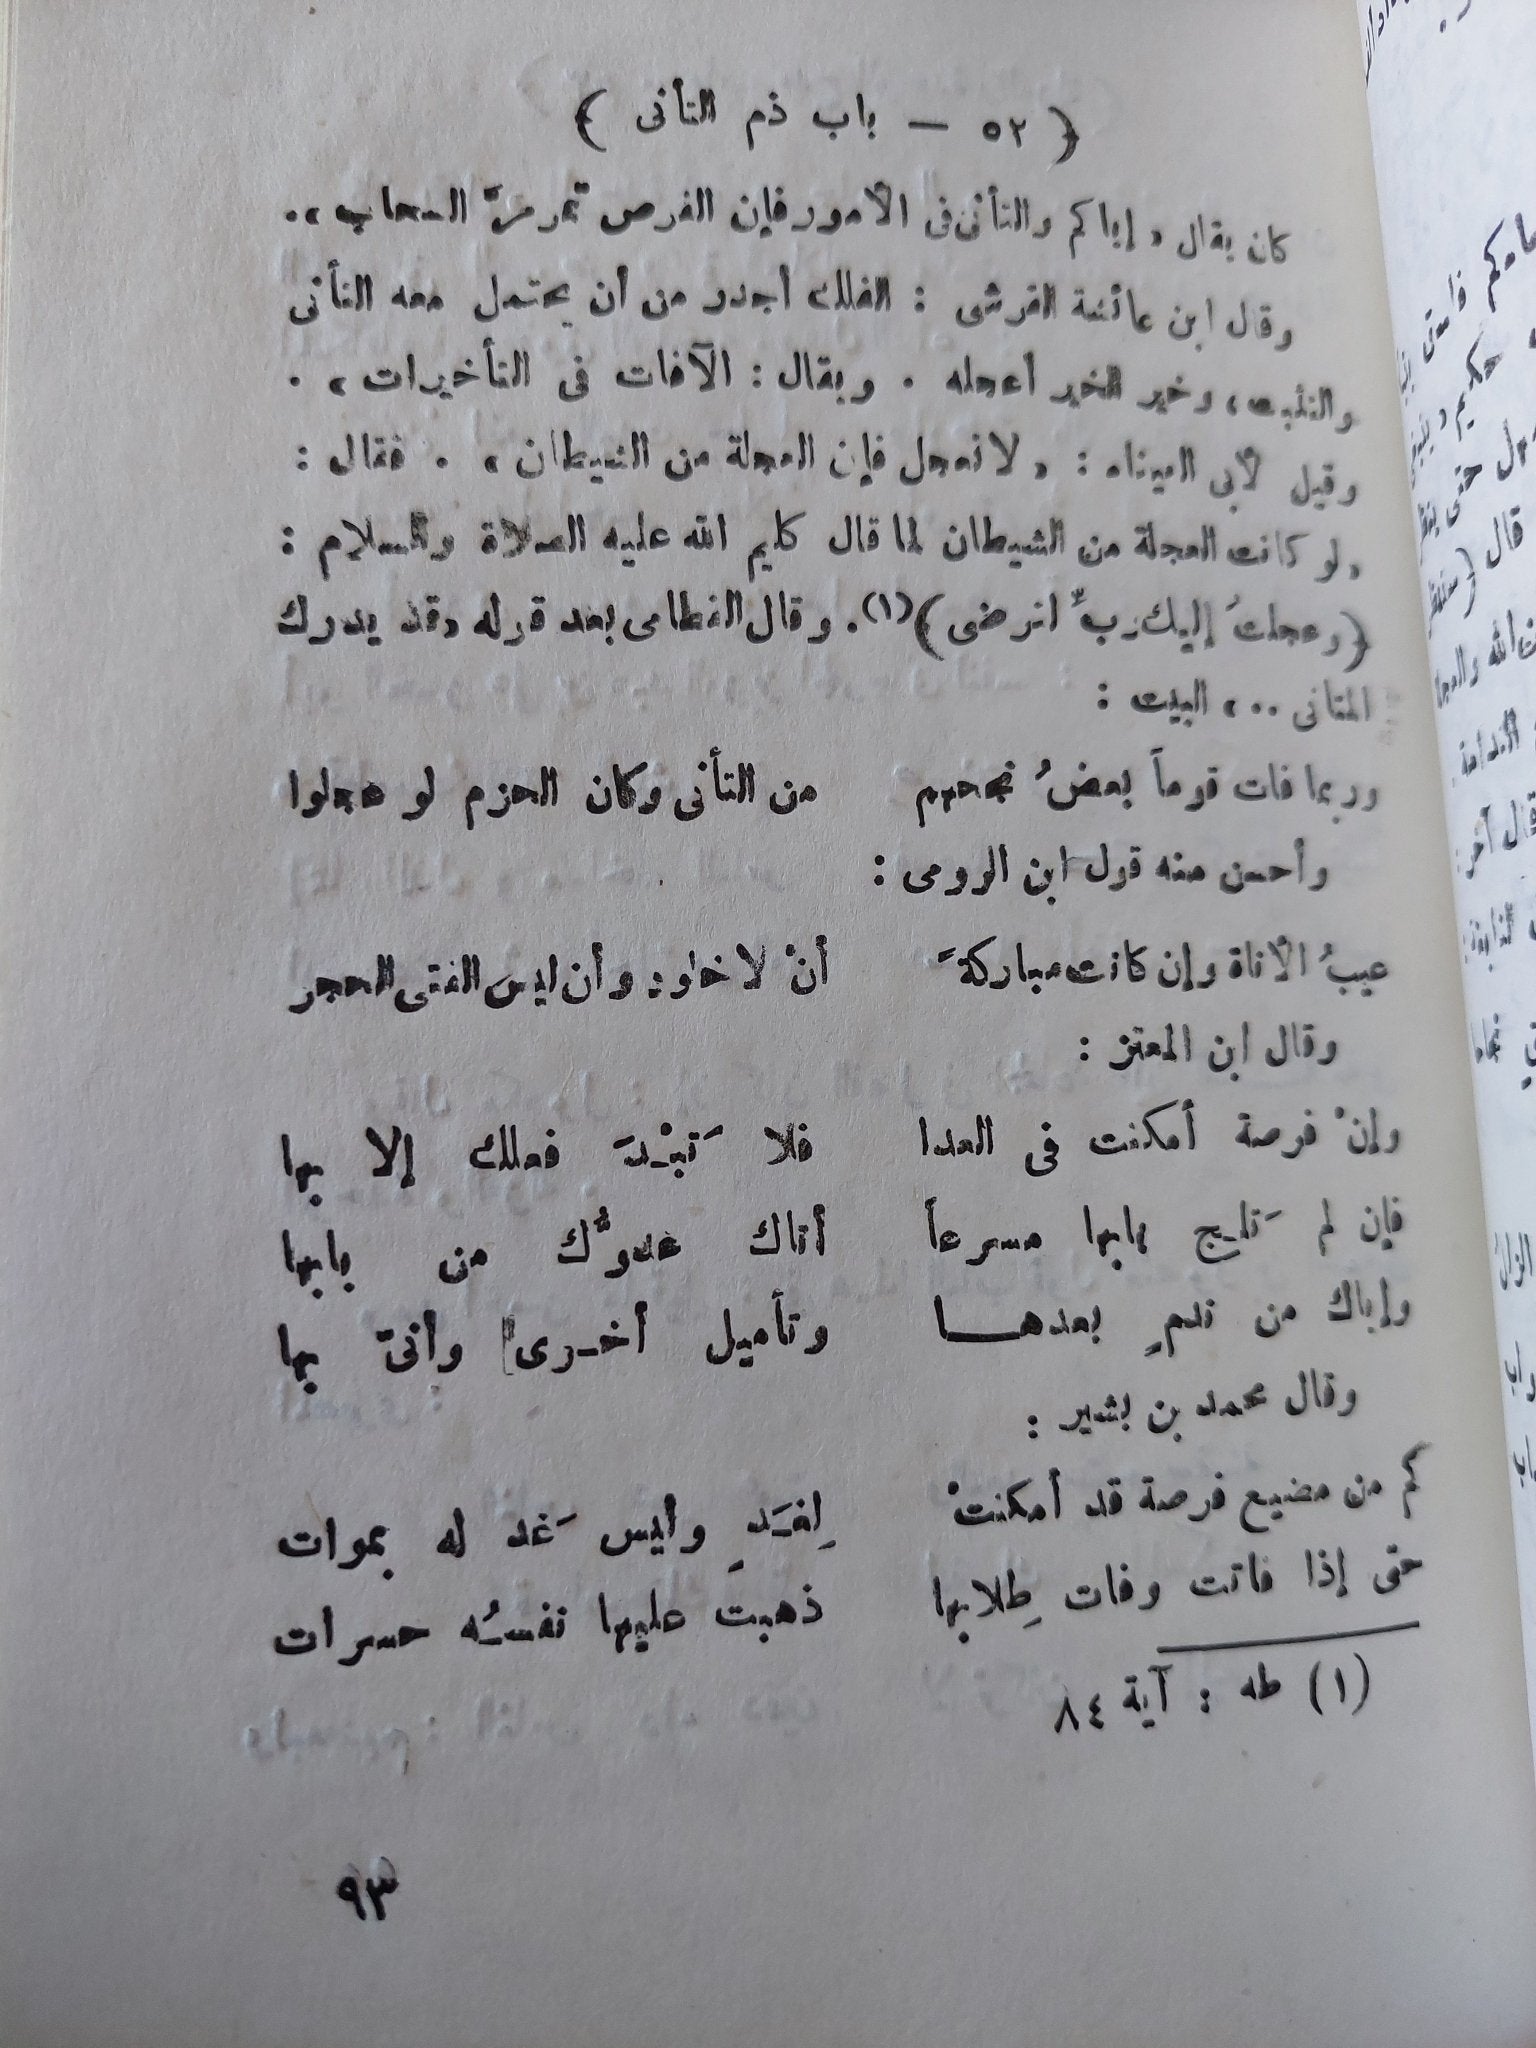 ﴿ ٥٢ — باب ذم التأنى ﴾
كان يقال « إياكم والتأنى فى الأمور فإن الفرص تمر مرَّ السحاب » .
وقال ابن عائشة القرشى : الفلك أجدر من أن يحتمل معه التأنى
والتثبت ، وخير الخير أعجله . ويقال : الآفات فى التأخيرات » .
وقيل لأبى العيناء : « لا تعجل فإن العجلة من الشيطان » . فقال :
« لو كانت العجلة من الشيطان لما قال كليم الله عليه الصلاة والسلام :
﴿ وعجلتُ إليك ربِّ لترضى ﴾ (١) . وقال القطامى بعد قوله « قد يدرك
المتأنى .. » البيت :
وربما فات قوماً بعضُ نجحهم من التأنى وكان الحزم لو عجلوا
وأحسن منه قول ابن الرومى :
عيبُ الأناة وإن كانت مباركةَ أنْ لا خلود وأن ليس الفتى الحجر
وقال ابن المعتز :
وإنْ فرصة أمكنت فى العدا فلا تَبْدَ فعلك إلا بها
فإن لم تَلج بابها مسرعاً أتاك عدوُّك من بابها
وإياك من ندمٍ بعدها وتأميل أخرى وأنىّ بها
وقال محمد بن بشير :
كم من مضيع فرصة قد أمكنتْ لِغَدٍ وليس غَد له بموات
حتى إذا فاتت وفات طِلابها ذهبت عليها نفسُه حسرات
(١) طه : آية ٨٤
٩٣